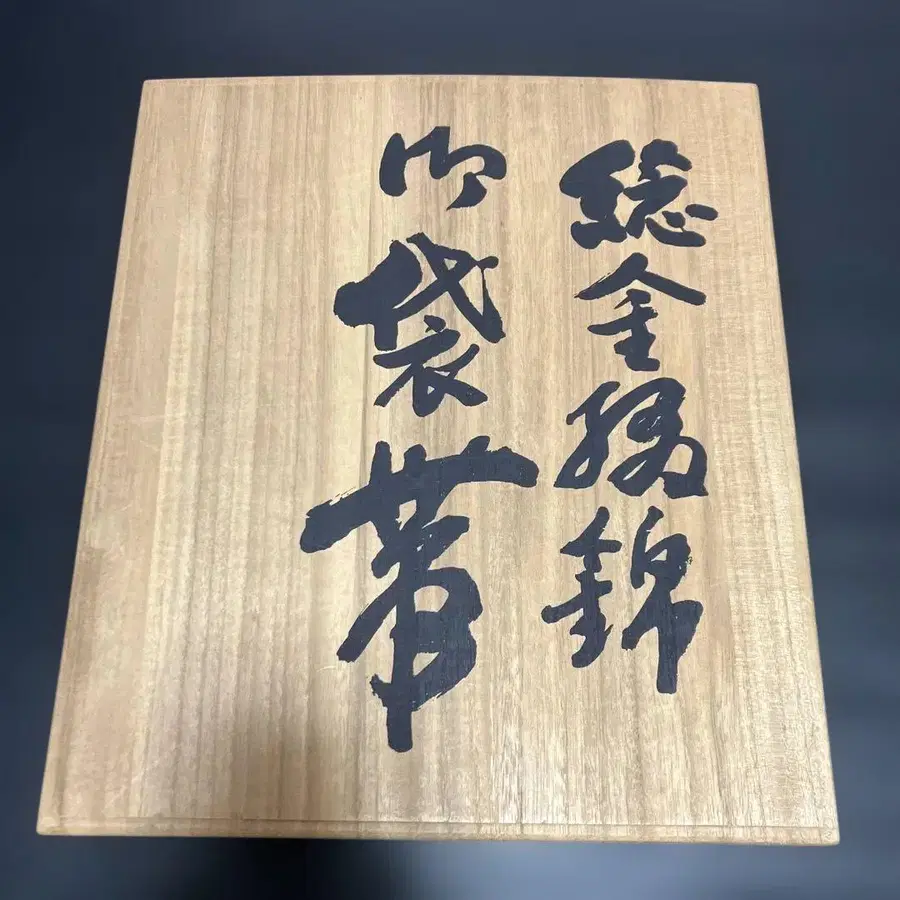 総金綉錦
御袋帯